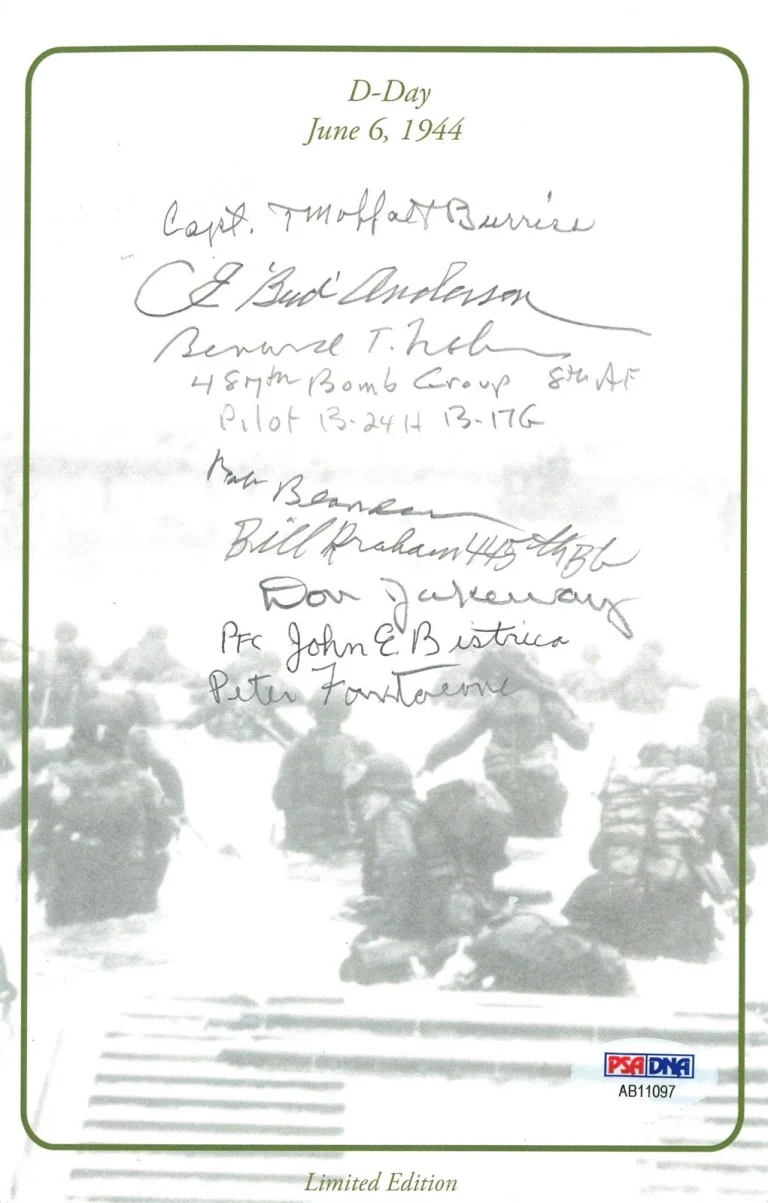 D-Day
June 6, 1944
Capt. T Moffatt Burriss
CE "Bud" Anderson
Bernard T. Nolan
487th Bomb Group 8th AF
Pilot B-24H B-17G
Bob Bearden
Bill Graham 445th BG
Don Jakeway
PFC John E. Bistrica
Peter Fantacone
PSA DNA
AB11097
Limited Edition